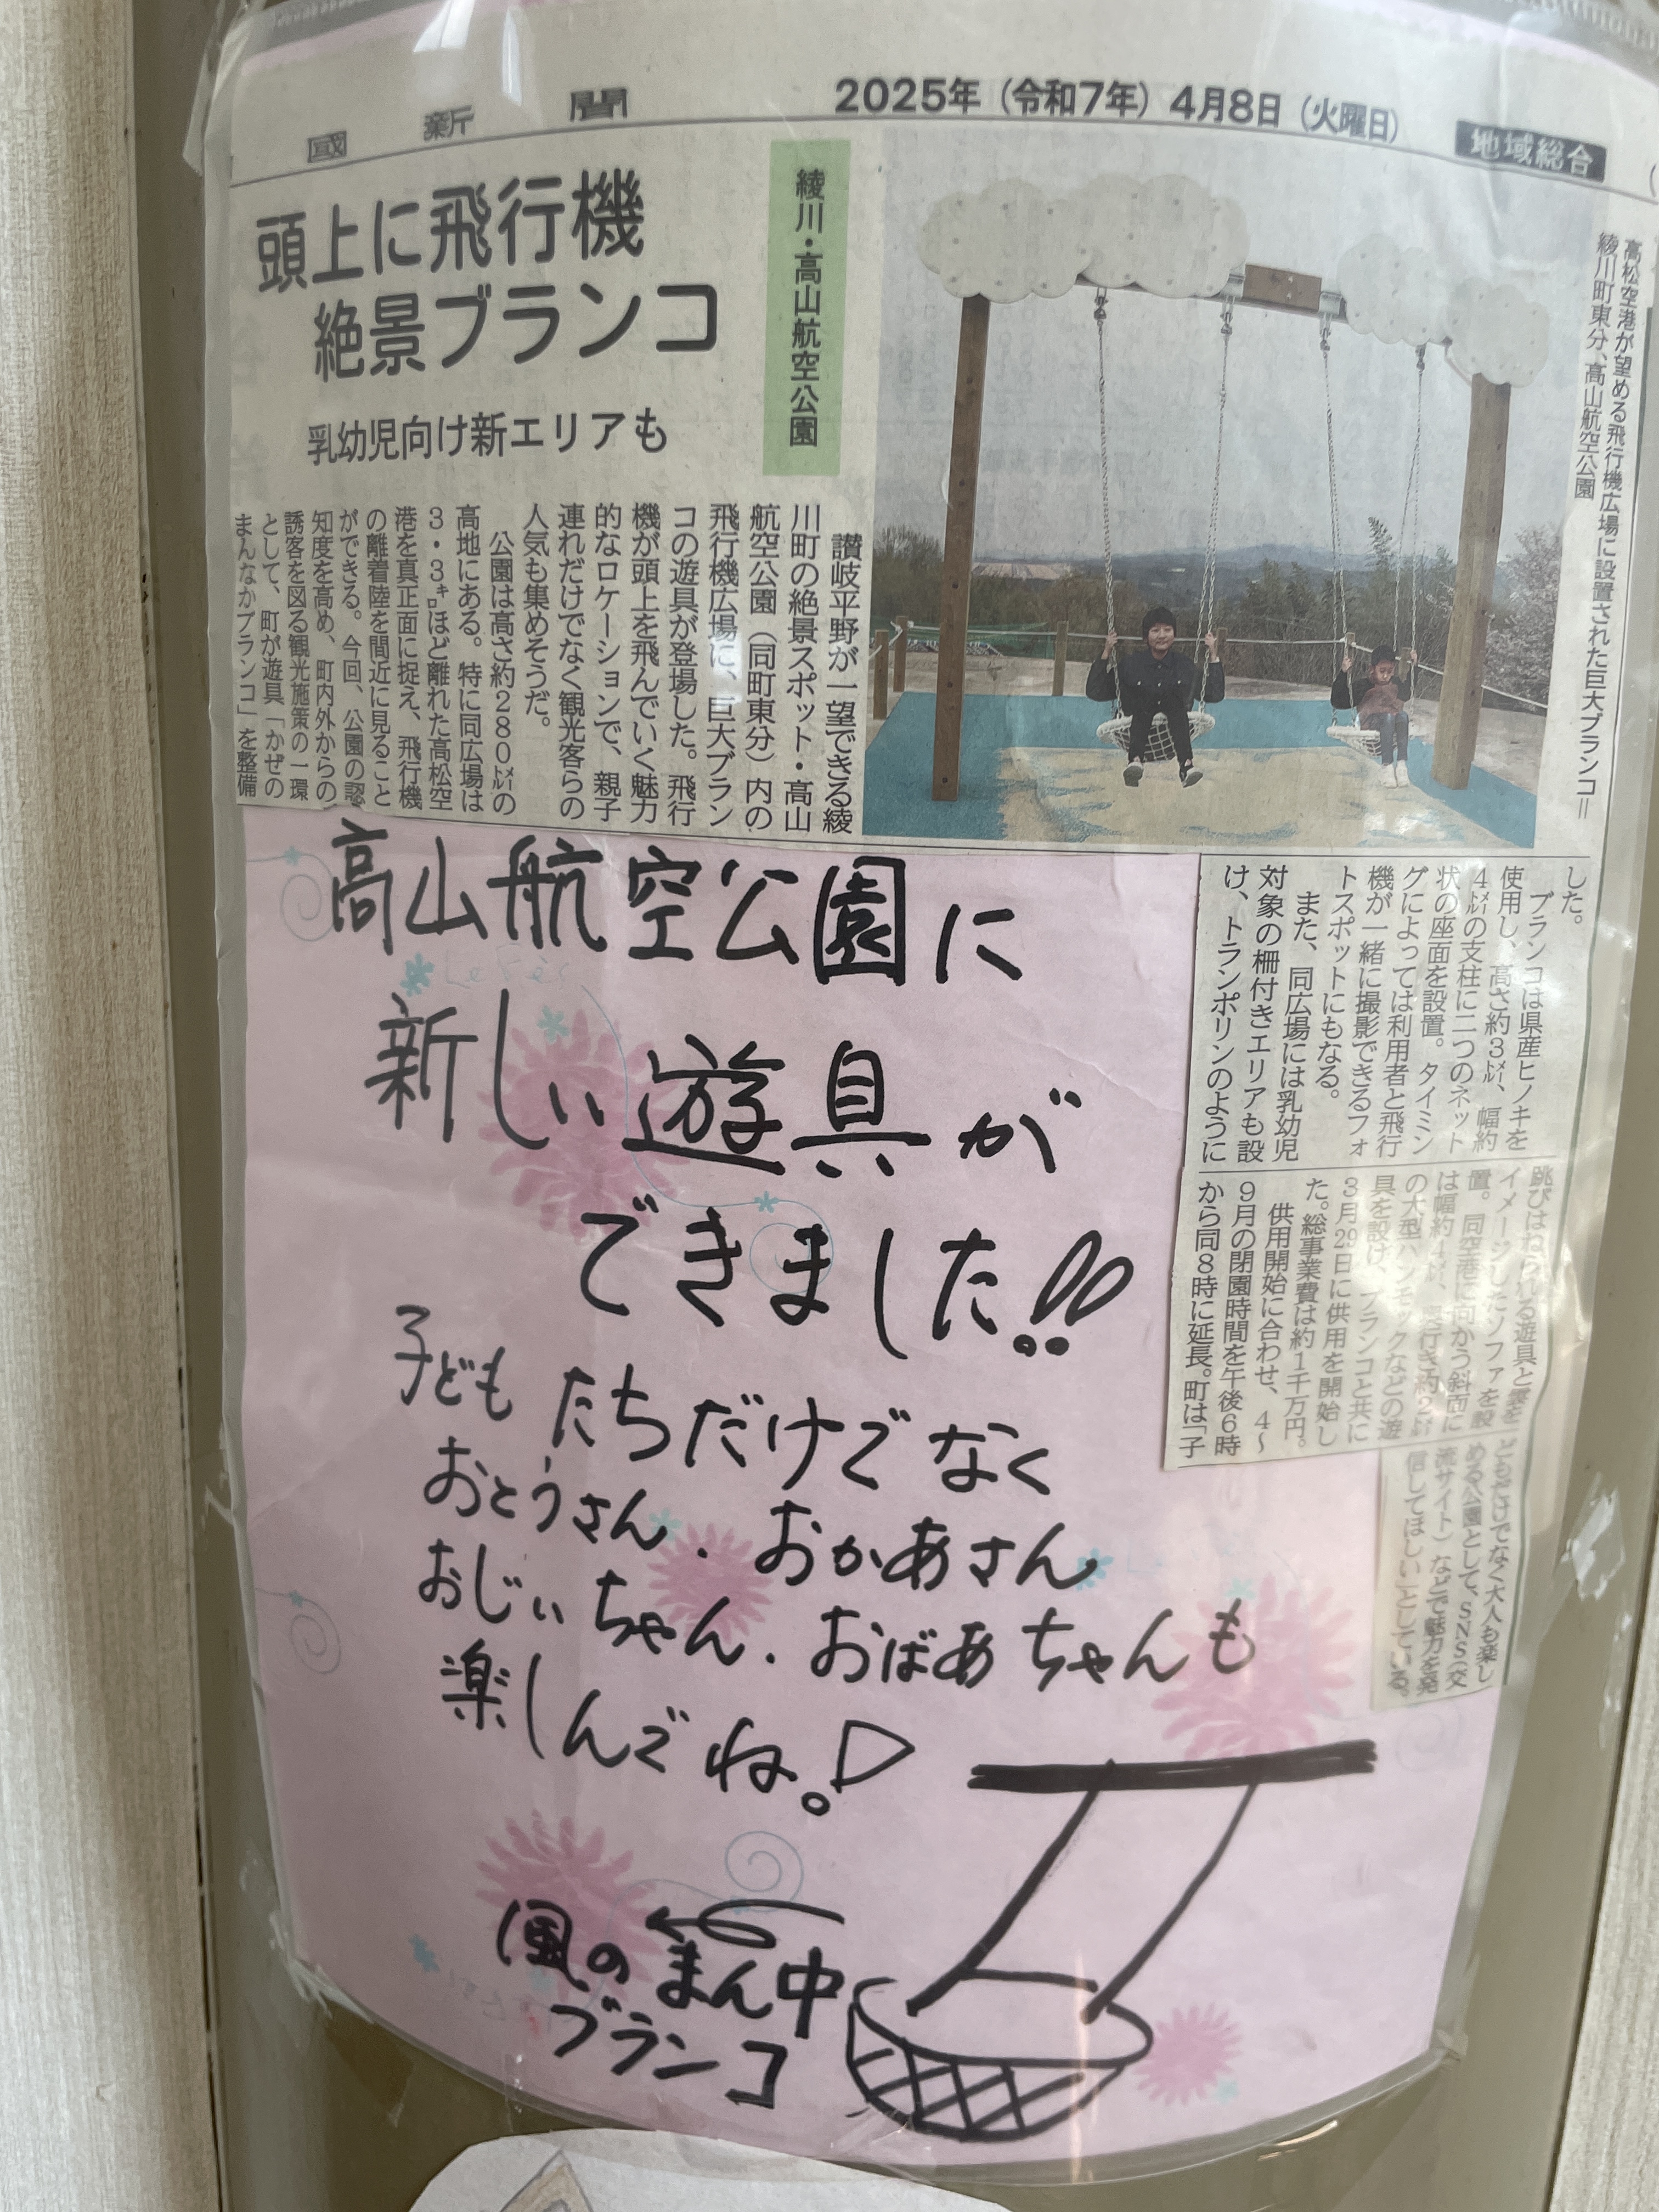 國新聞
2025年（令和7年）4月8日（火曜日）
地域総合
頭上に飛行機
絶景ブランコ
乳幼児向け新エリアも
綾川・高山航空公園
高松空港が望める飛行機広場に設置された巨大ブランコ＝
綾川町東分、高山航空公園
讃岐平野が一望できる綾
川町の絶景スポット・高山
航空公園（同町東分）内の
飛行機広場に、巨大ブラン
コの遊具が登場した。飛行
機が頭上を飛んでいく魅力
的なロケーションで、親子
連れだけでなく観光客らの
人気も集めそうだ。
公園は高さ約280㍍の
高地にある。特に同広場は
3・3㌔ほど離れた高松空
港を真正面に捉え、飛行機
の離着陸を間近に見ること
ができる。今回、公園の認
知度を高め、町内外からの
誘客を図る観光施策の一環
として、町が遊具「かぜの
まんなかブランコ」を整備
した。
ブランコは県産ヒノキを
使用し、高さ約3㍍、幅約
4㍍の支柱に二つのネット
状の座面を設置。タイミン
グによっては利用者と飛行
機が一緒に撮影できるフォ
トスポットにもなる。
また、同広場には乳幼児
対象の柵付きエリアも設
け、トランポリンのように
跳びはねられる遊具と雲を
イメージしたソファを設
置。同空港に向かう斜面に
は幅約4㍍、奥行き約2㍍
の大型ハンモックなどの遊
具を設け、ブランコと共に
3月29日に供用を開始し
た。総事業費は約1千万円。
供用開始に合わせ、4〜
9月の閉園時間を午後6時
から同8時に延長。町は「子
どもだけでなく大人も楽し
める公園として、SNS（交
流サイト）などで魅力を発
信してほしい」としている。
高山航空公園に
新しい遊具が
できました!!
子どもたちだけでなく
おとうさん．おかあさん
おじぃちゃん．おばあちゃんも
楽しんでね。♡
風のまん中
ブランコ